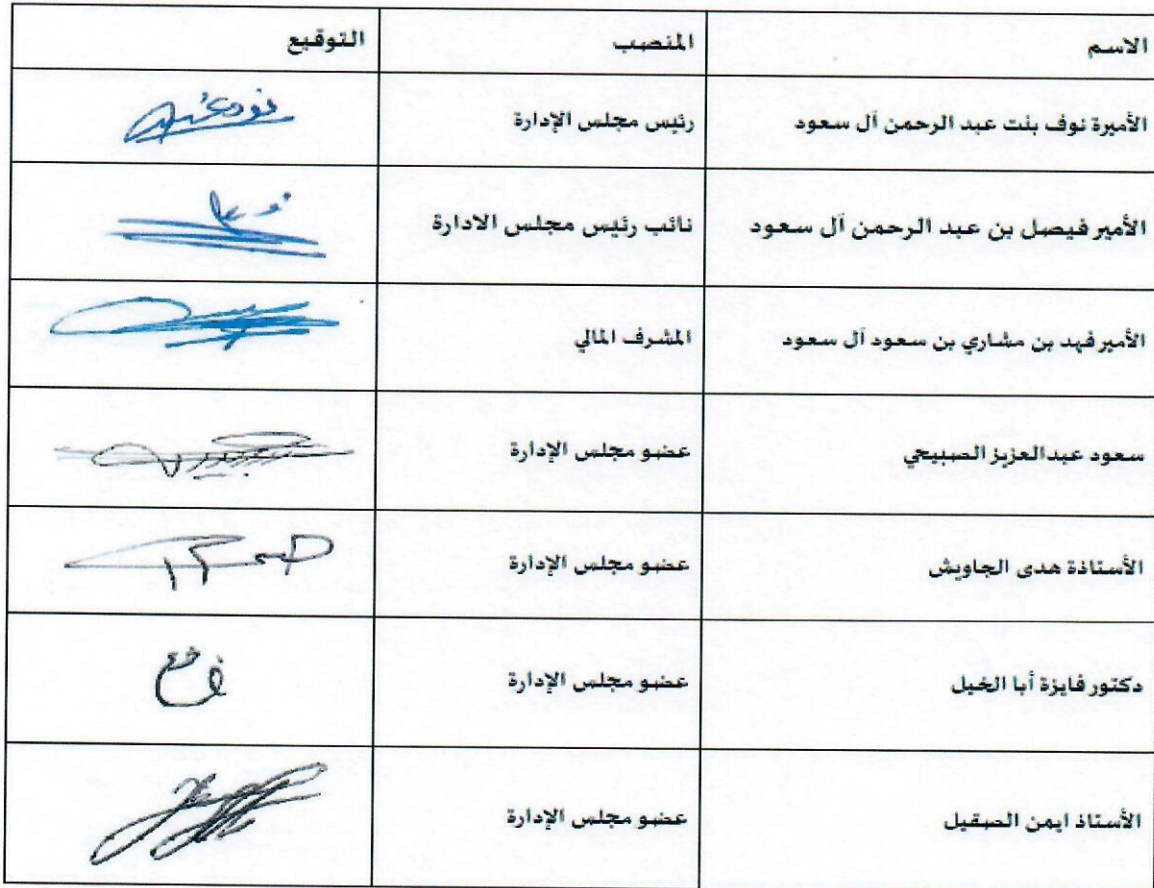 الاسم المنصب التوقيع
الأميرة نوف بنت عبد الرحمن آل سعود رئيس مجلس الإدارة
الأمير فيصل بن عبد الرحمن آل سعود نائب رئيس مجلس الادارة
الأمير فهد بن مشاري بن سعود آل سعود المشرف المالي
سعود عبدالعزيز الصبيحي عضو مجلس الإدارة
الأستاذة هدى الجاويش عضو مجلس الإدارة
دكتور فايزة أبا الخيل عضو مجلس الإدارة
الأستاذ ايمن الصقيل عضو مجلس الإدارة